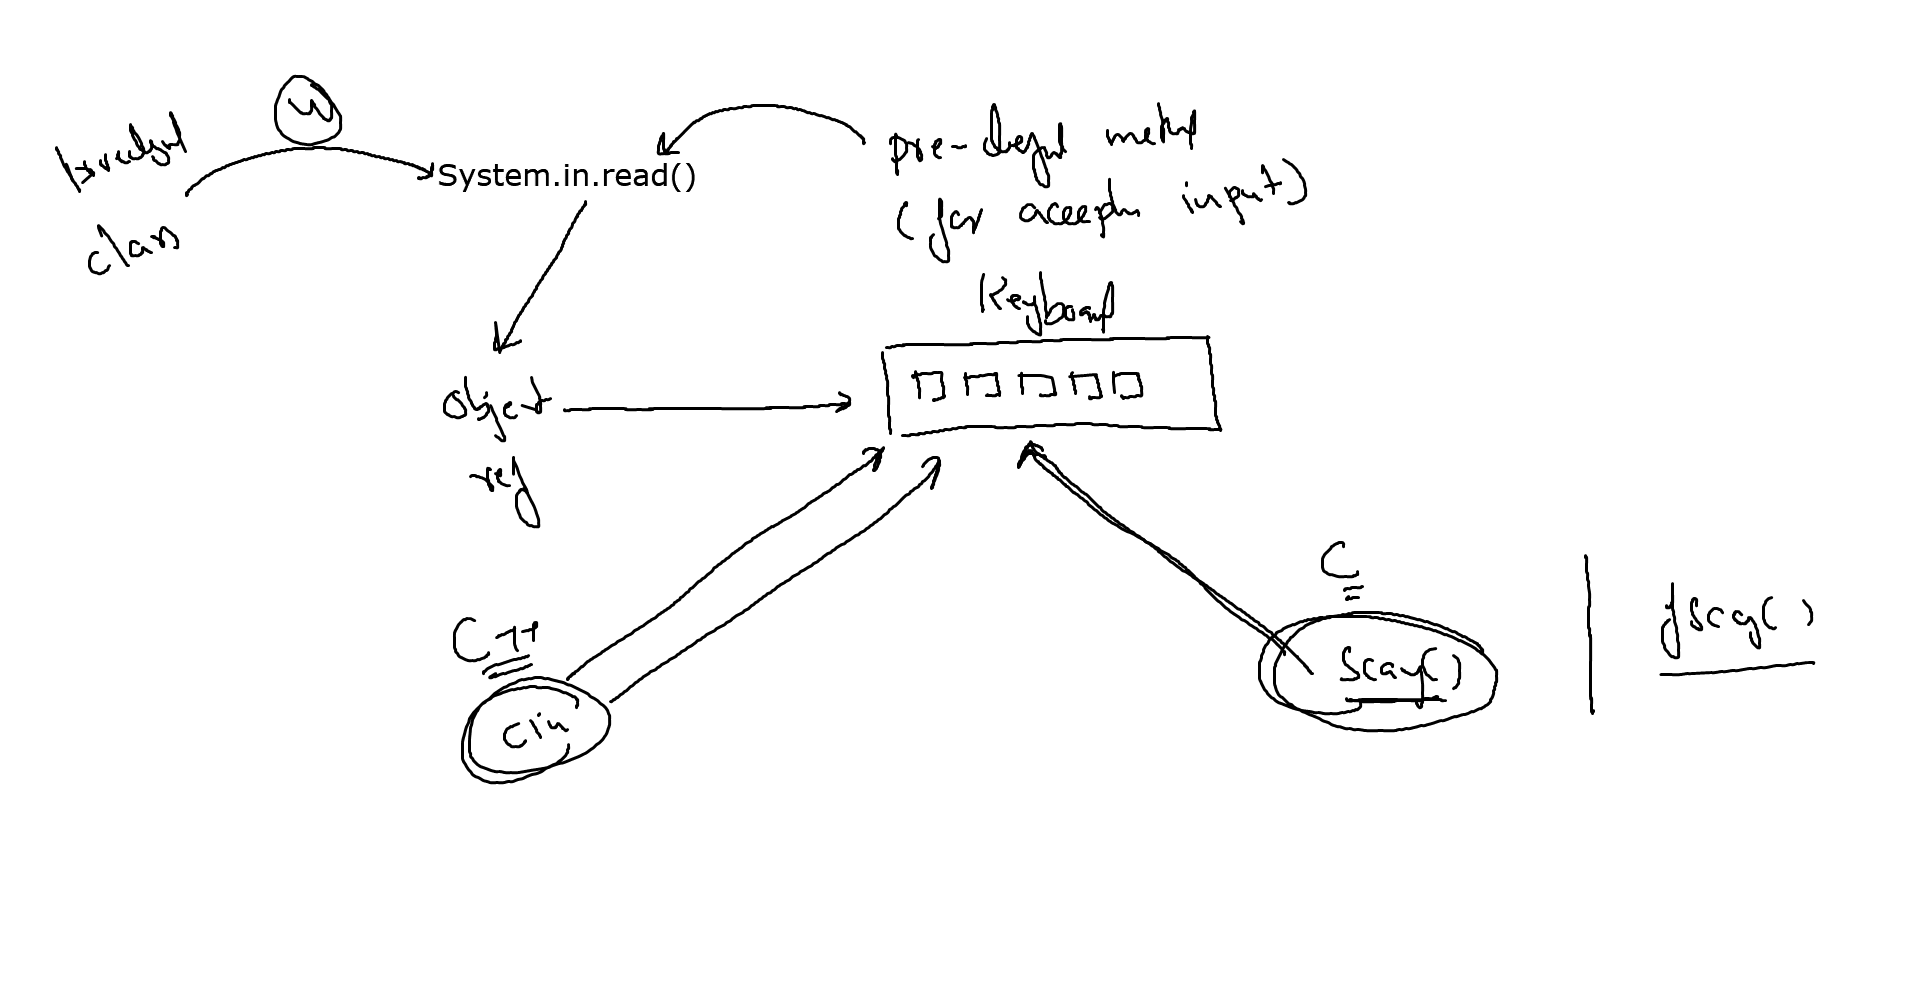 class
System.in.read()
pre-defined method
(for accepting input)
Keyboard
object
ref
C++
cin
C
scanf()
fscanf()